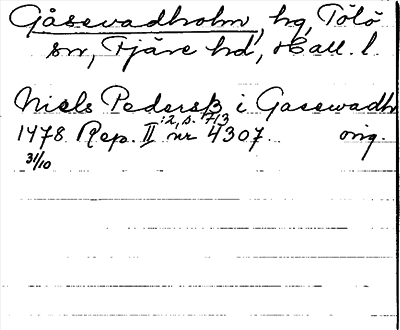 Gåsevadholm, hg, Tölö
sn, Fjäre hd, Hall. l.
Niels Pederss i Gasewadh
:2, s. 713
1478 Rep. II nr 4307. orig.
31/10